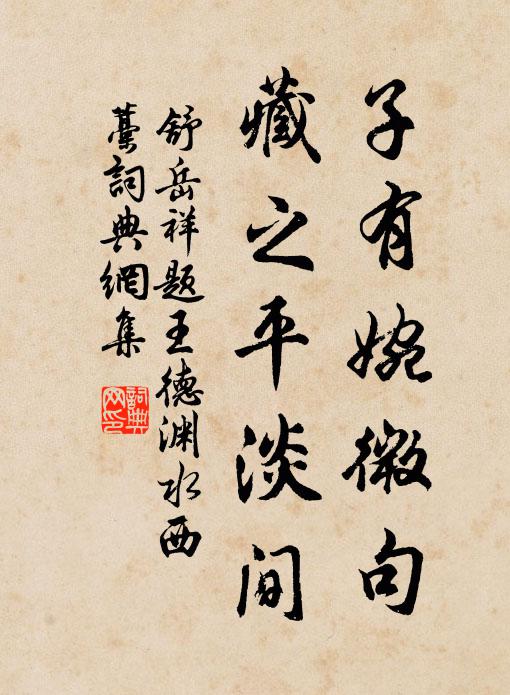 子有婉微句
藏之平淡间
舒岳祥题王德渊水西
藁詞典網集
詞典
网印